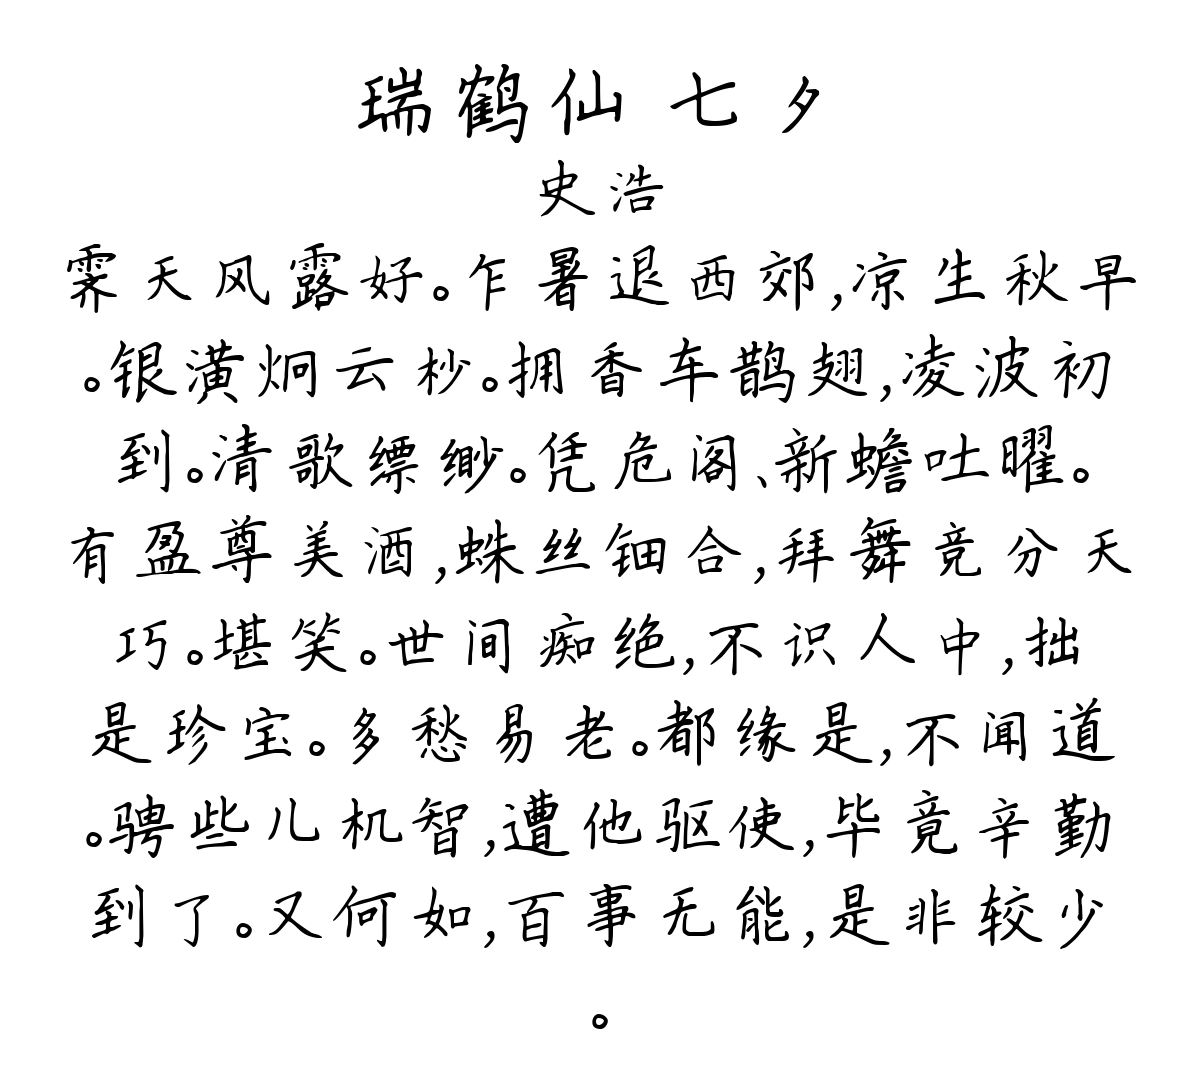 瑞鹤仙 七夕
史浩
霁天风露好。乍暑退西郊,凉生秋早
。银潢炯云杪。拥香车鹊翅,凌波初
到。清歌缥缈。凭危阁、新蟾吐曜。
有盈尊美酒,蛛丝钿合,拜舞竞分天
巧。堪笑。世间痴绝,不识人中,拙
是珍宝。多愁易老。都缘是,不闻道
。骋些儿机智,遭他驱使,毕竟辛勤
到了。又何如,百事无能,是非较少
。